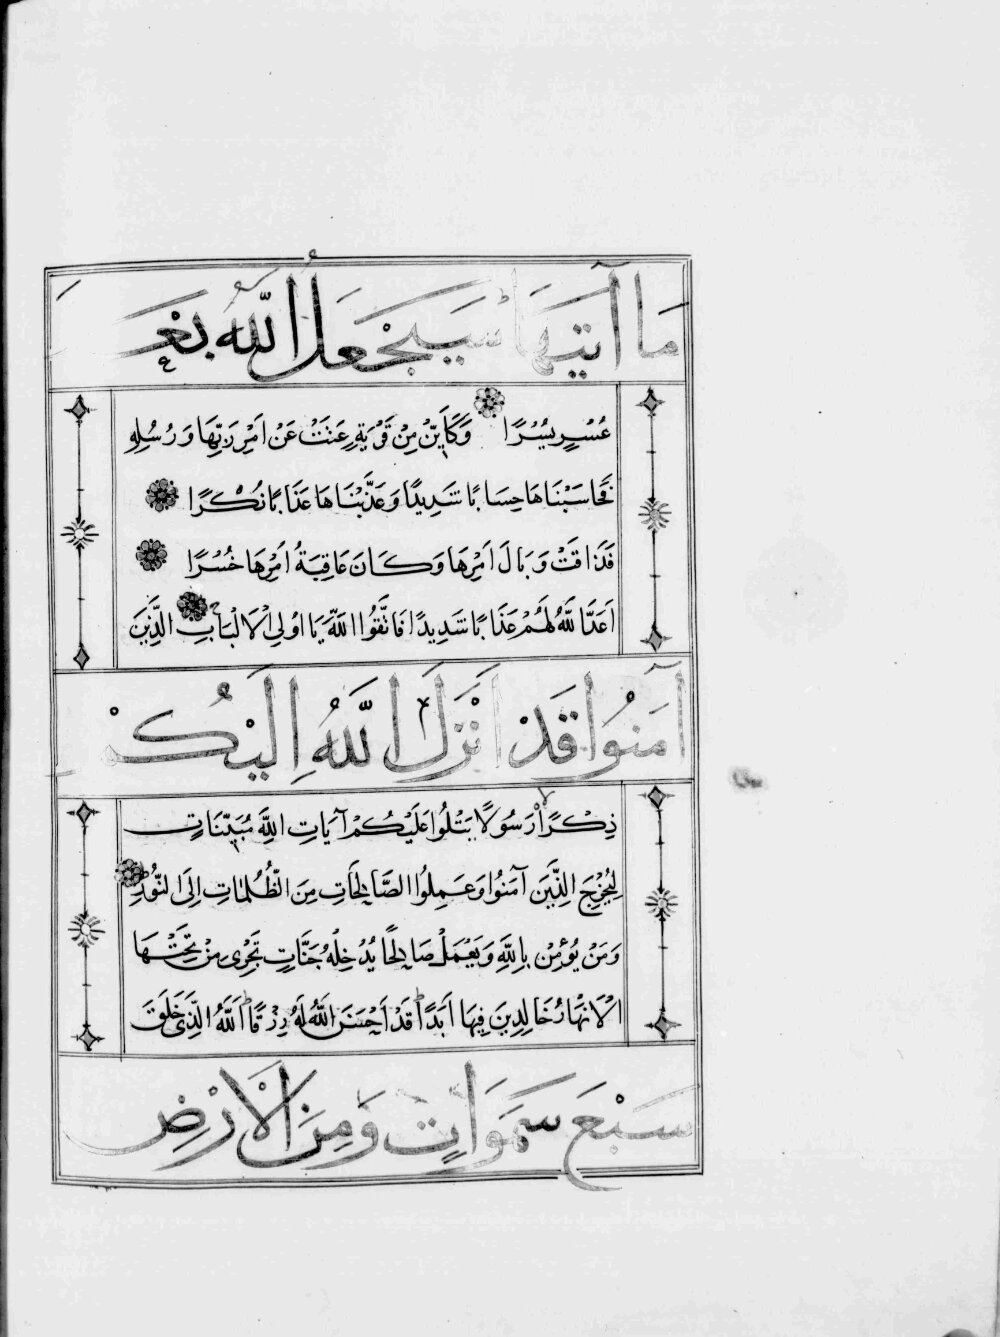 مَا آتٰيهَا سَيَجْعَلُ اللّٰهُ بَعْدَ
عُسْرٍ يُسْرًا وَكَاَيِّنْ مِنْ قَرْيَةٍ عَتَتْ عَنْ اَمْرِ رَبِّهَا وَرُسُلِهِ
فَحَاسَبْنَاهَا حِسَابًا شَدِيدًا وَعَذَّبْنَاهَا عَذَابًا نُكْرًا
فَذَاقَتْ وَبَالَ اَمْرِهَا وَكَانَ عَاقِبَةُ اَمْرِهَا خُسْرًا
اَعَدَّ اللّٰهُ لَهُمْ عَذَابًا شَدِيدًا فَاتَّقُوا اللّٰهَ يَا اُولِى الْاَلْبَابِ الَّذِينَ
آمَنُوا قَدْ اَنْزَلَ اللّٰهُ اِلَيْكُمْ
ذِكْرًا رَسُولًا يَتْلُوا عَلَيْكُمْ آيَاتِ اللّٰهِ مُبَيِّنَاتٍ
لِيُخْرِجَ الَّذِينَ آمَنُوا وَعَمِلُوا الصَّالِحَاتِ مِنَ الظُّلُمَاتِ اِلَى النُّورِ
وَمَنْ يُؤْمِنْ بِاللّٰهِ وَيَعْمَلْ صَالِحًا يُدْخِلْهُ جَنَّاتٍ تَجْرِى مِنْ تَحْتِهَا
الْاَنْهَارُ خَالِدِينَ فِيهَا اَبَدًا قَدْ اَحْسَنَ اللّٰهُ لَهُ رِزْقًا اَللّٰهُ الَّذِى خَلَقَ
سَبْعَ سَمٰوَاتٍ وَمِنَ الْاَرْضِ